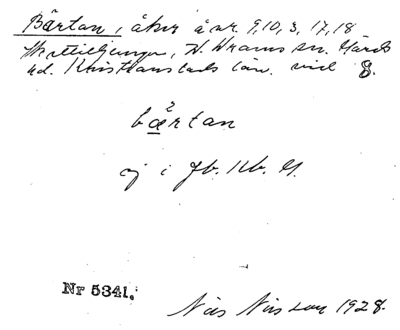 Bärtan, åker å nr. 9, 10, 3, 17, 18
Maltesljungen, N. Åkarps sn. Gärds
hd. Kristianstads län. vid 8.
bä²rtan
ej i Jb. Kb. G.
Nr 5341.
Nils Nilsson 1928.